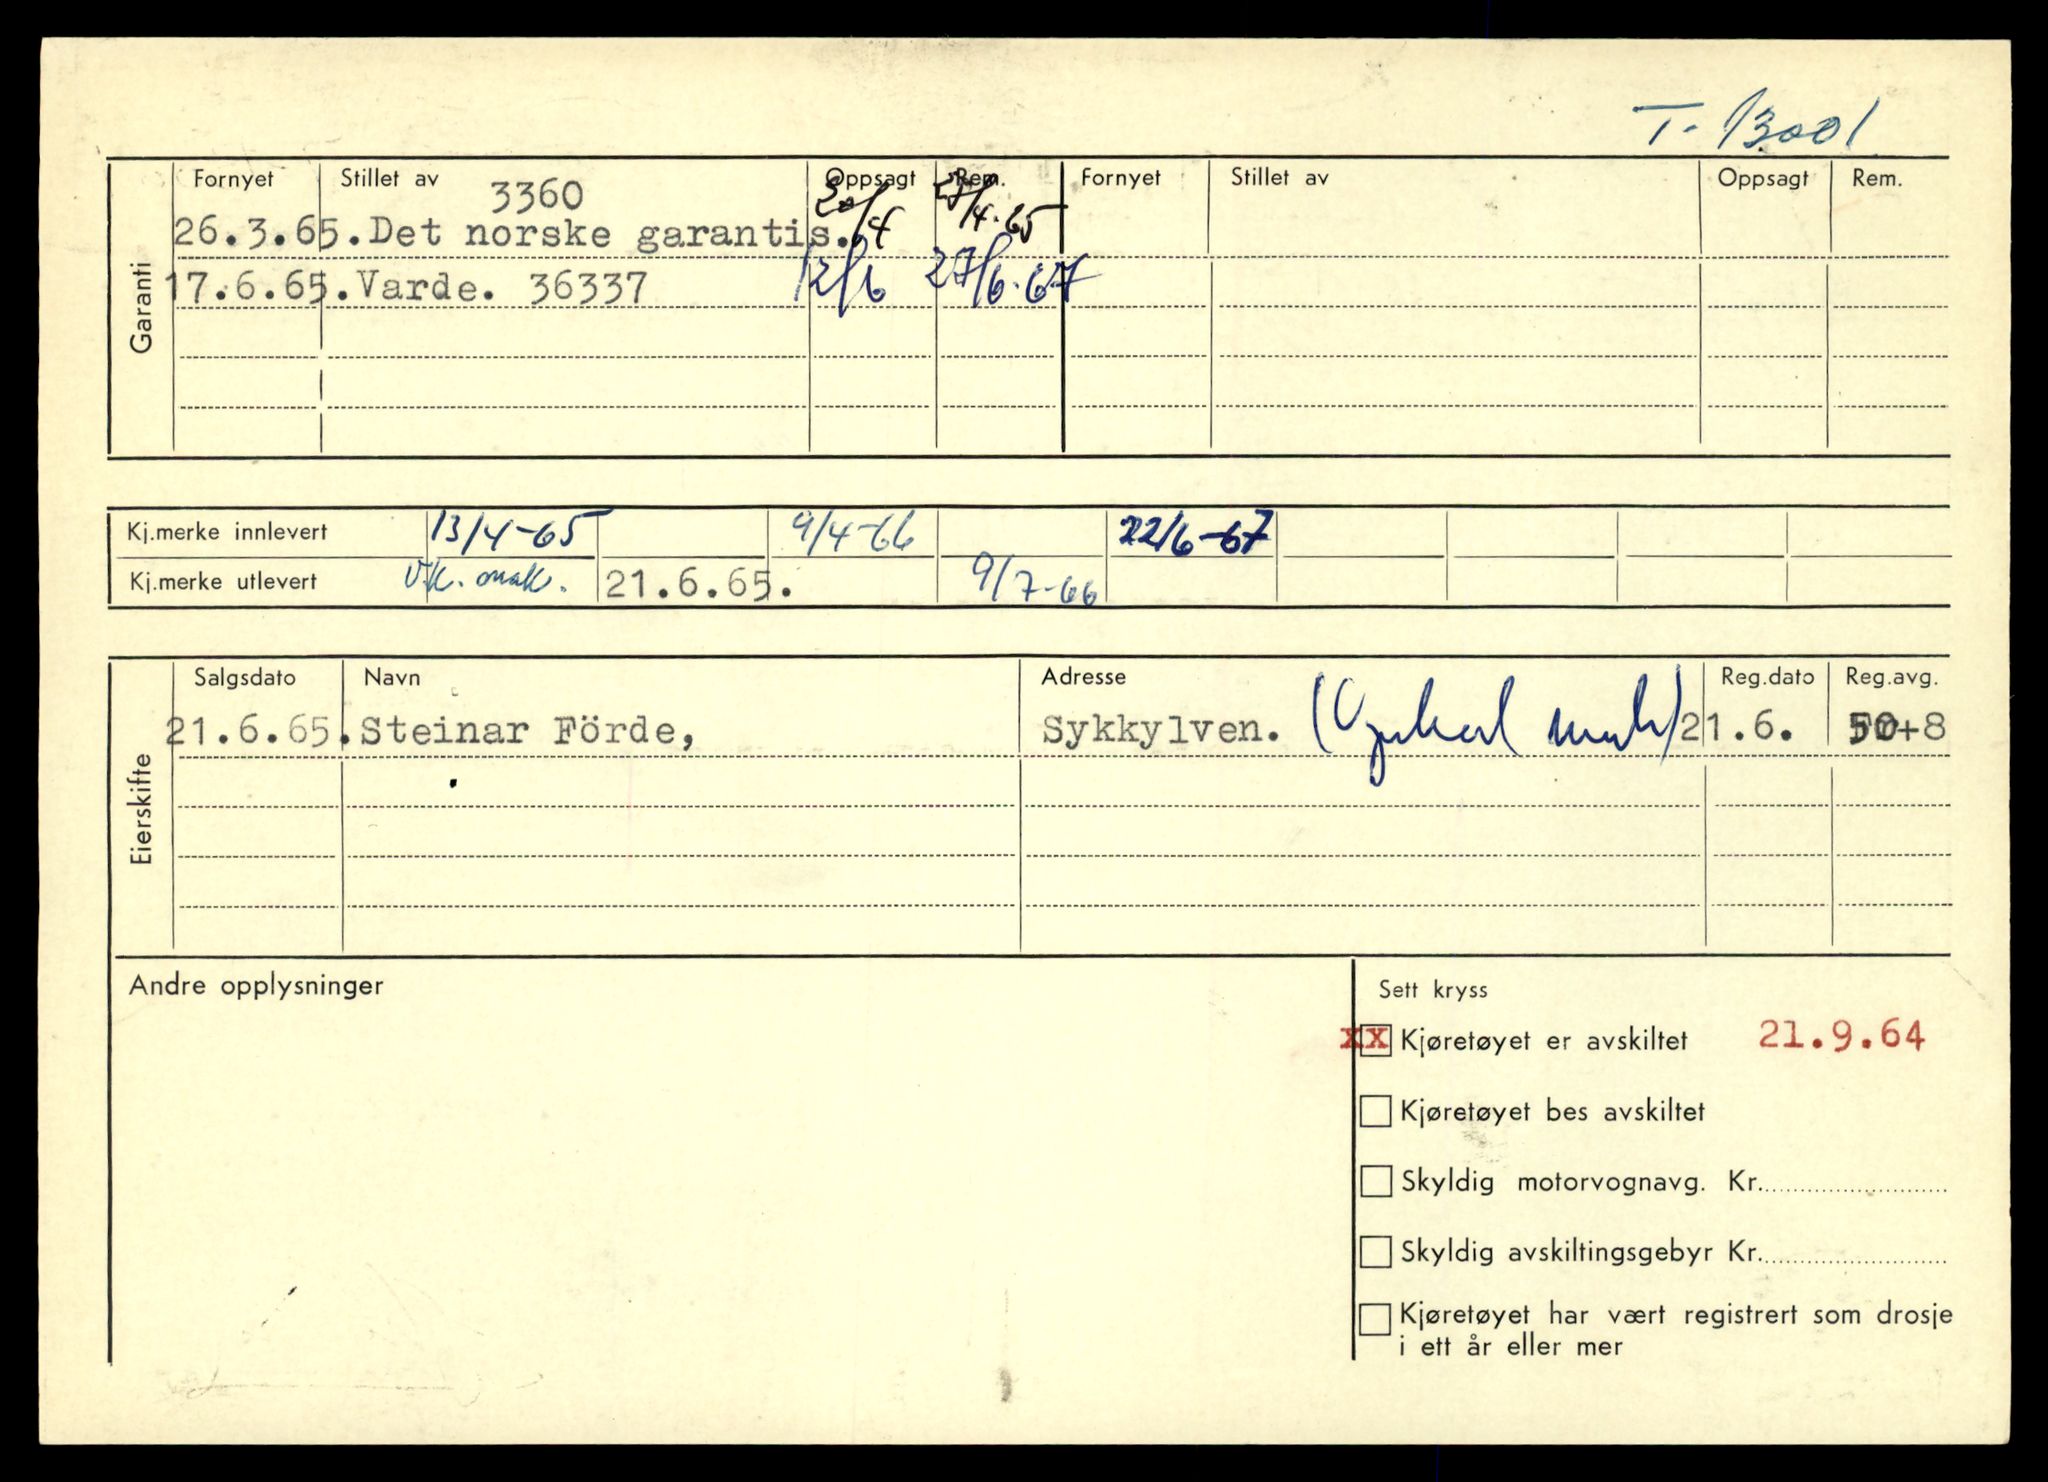 T- 13001
Fornyet Stillet av Oppsagt Rem. Fornyet Stillet av Oppsagt Rem.
3360
26.3.65. Det norske garantis. 20/4 27/4.65
Garanti
17.6.65. Varde. 36337 12/6 27/6.67
Kj.merke innlevert 13/4-65 9/4-66 22/6-67
Kj.merke utlevert 21.6.65. 9/7-66
Eierskifte
Salgsdato Navn Adresse Reg.dato Reg.avg.
21.6.65. Steinar Förde, Sykkylven. 21.6. 50+8
Andre opplysninger
Sett kryss
xx Kjøretøyet er avskiltet 21.9.64
Kjøretøyet bes avskiltet
Skyldig motorvognavg. Kr.
Skyldig avskiltingsgebyr Kr.
Kjøretøyet har vært registrert som drosje
i ett år eller mer